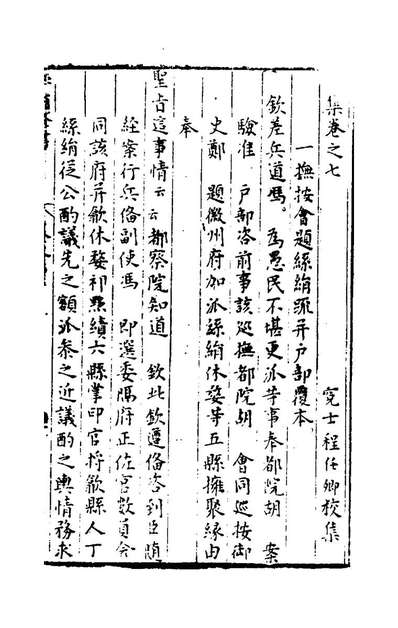 集卷之七
寃士程任卿校集
一撫按會題絲絹疏并戶部覆本
欽差兵道馮。為愚民不堪更派等事奉都院胡 案
驗准 戶部咨前事該巡撫都院胡 會同巡按御
史鄭 題徽州府加派絲絹休婺等五縣擁聚緣由
奉
聖旨這事情云云都察院知道 欽此欽遵備咨到臣隨
經案行兵備副使馮 即選委隔府正佐官數員會
同該府并歙休婺祁黟績六縣掌印官將歙縣人丁
絲絹從公酌議先之額派參之近議酌之輿情務求